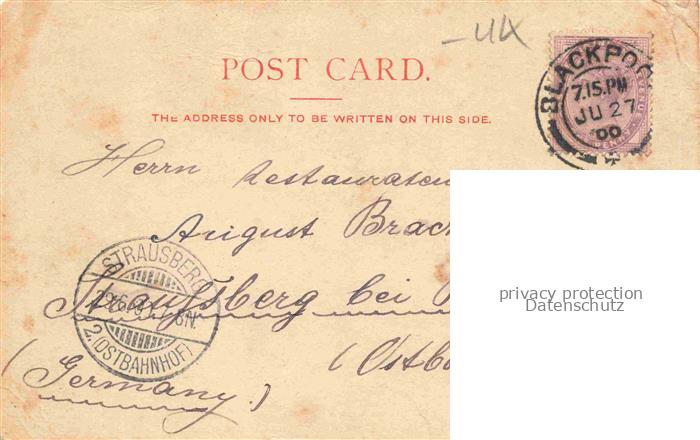 -UK
POST CARD.
THE ADDRESS ONLY TO BE WRITTEN ON THIS SIDE.
BLACKPOO
7.15.PM
JU 27
00
Herrn Restaurateu
August Brac
STRAUSBERG
2.(OSTBAHNHOF)
Straußberg bei
(Ostb
(Germany.)
privacy protection
Datenschutz